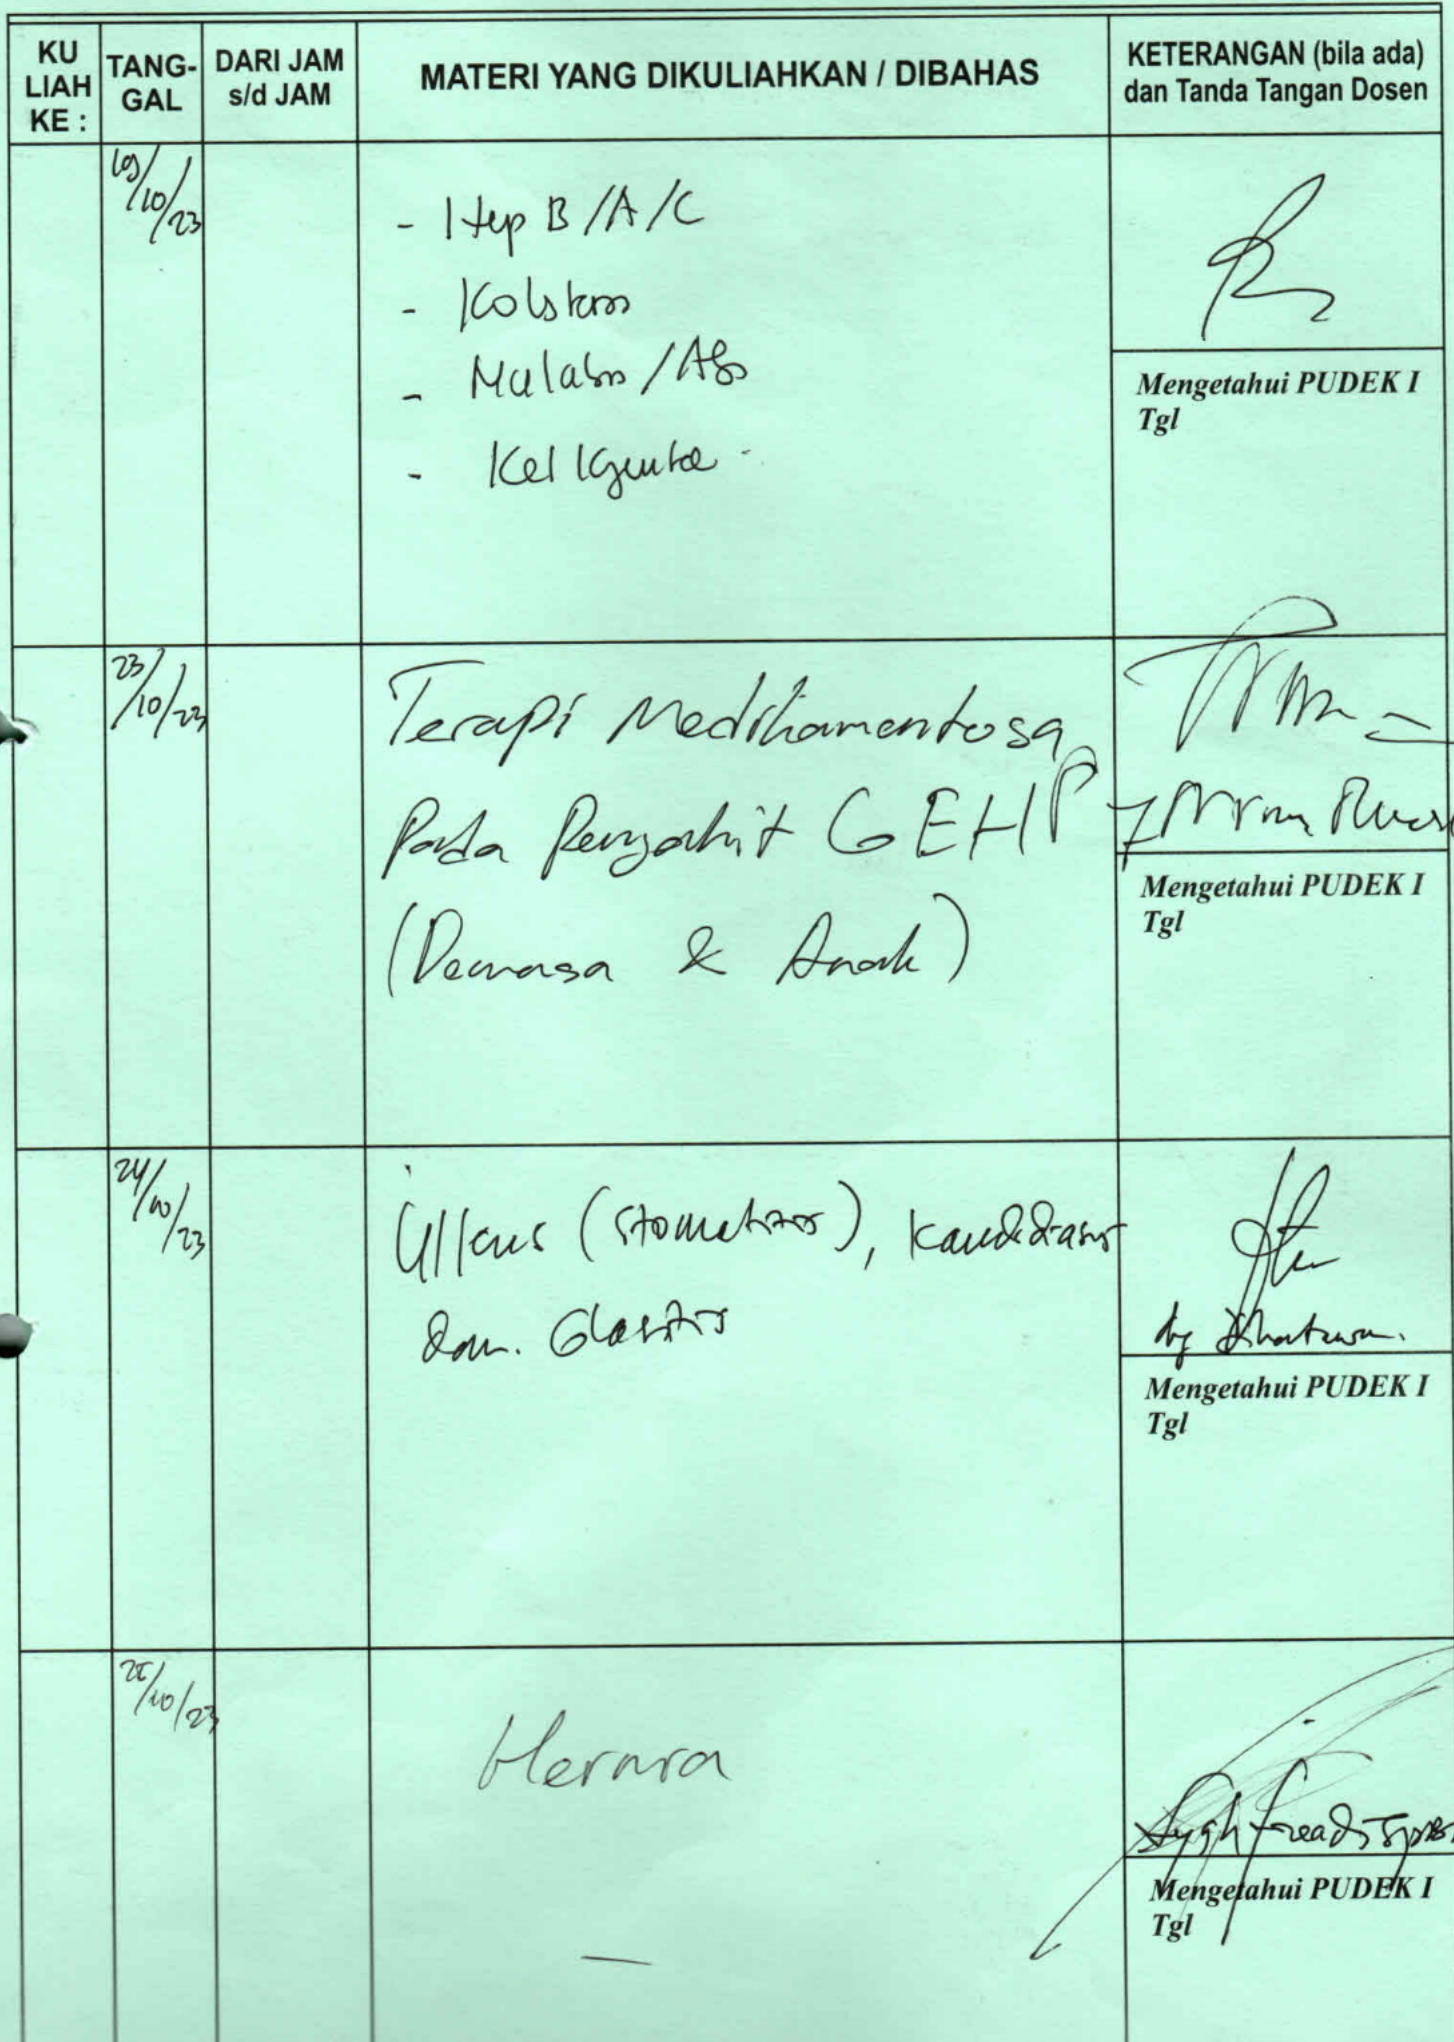 KU LIAH KE :
TANG-GAL
DARI JAM s/d JAM
MATERI YANG DIKULIAHKAN / DIBAHAS
KETERANGAN (bila ada) dan Tanda Tangan Dosen
/10/23
- Hep B/A/C
- Kolstasis
-
- Kel
Mengetahui PUDEK I
Tgl
23/10/23
Terapi Medikamentosa
Pada Penyakit GEHP
(Dewasa & Anak)
Mengetahui PUDEK I
Tgl
24/10/23
Ulkus (Stomatitis), Kandidiasis
dan. Glositis
Mengetahui PUDEK I
Tgl
25/10/23
Hernia
Mengetahui PUDEK I
Tgl